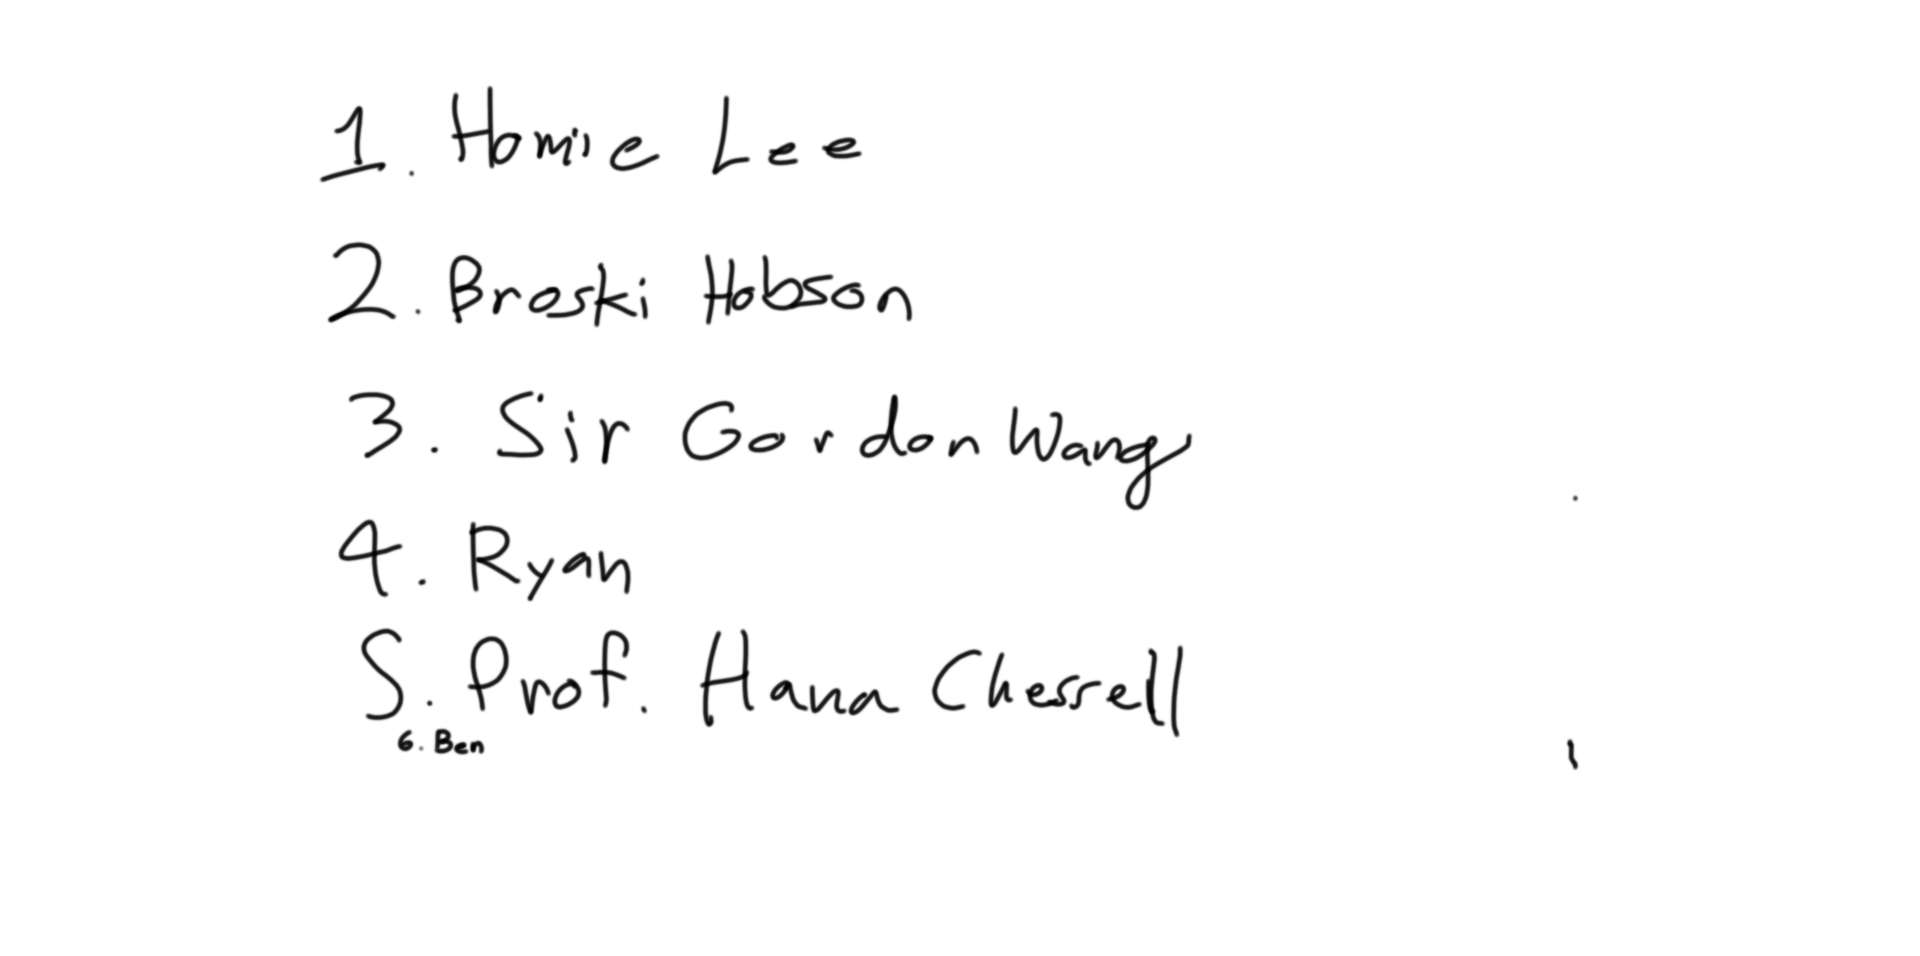 1. Homie Lee
2. Broski Hobson
3. Sir Gordon Wang
4. Ryan
5. Prof. Hana Chessell
6. Ben